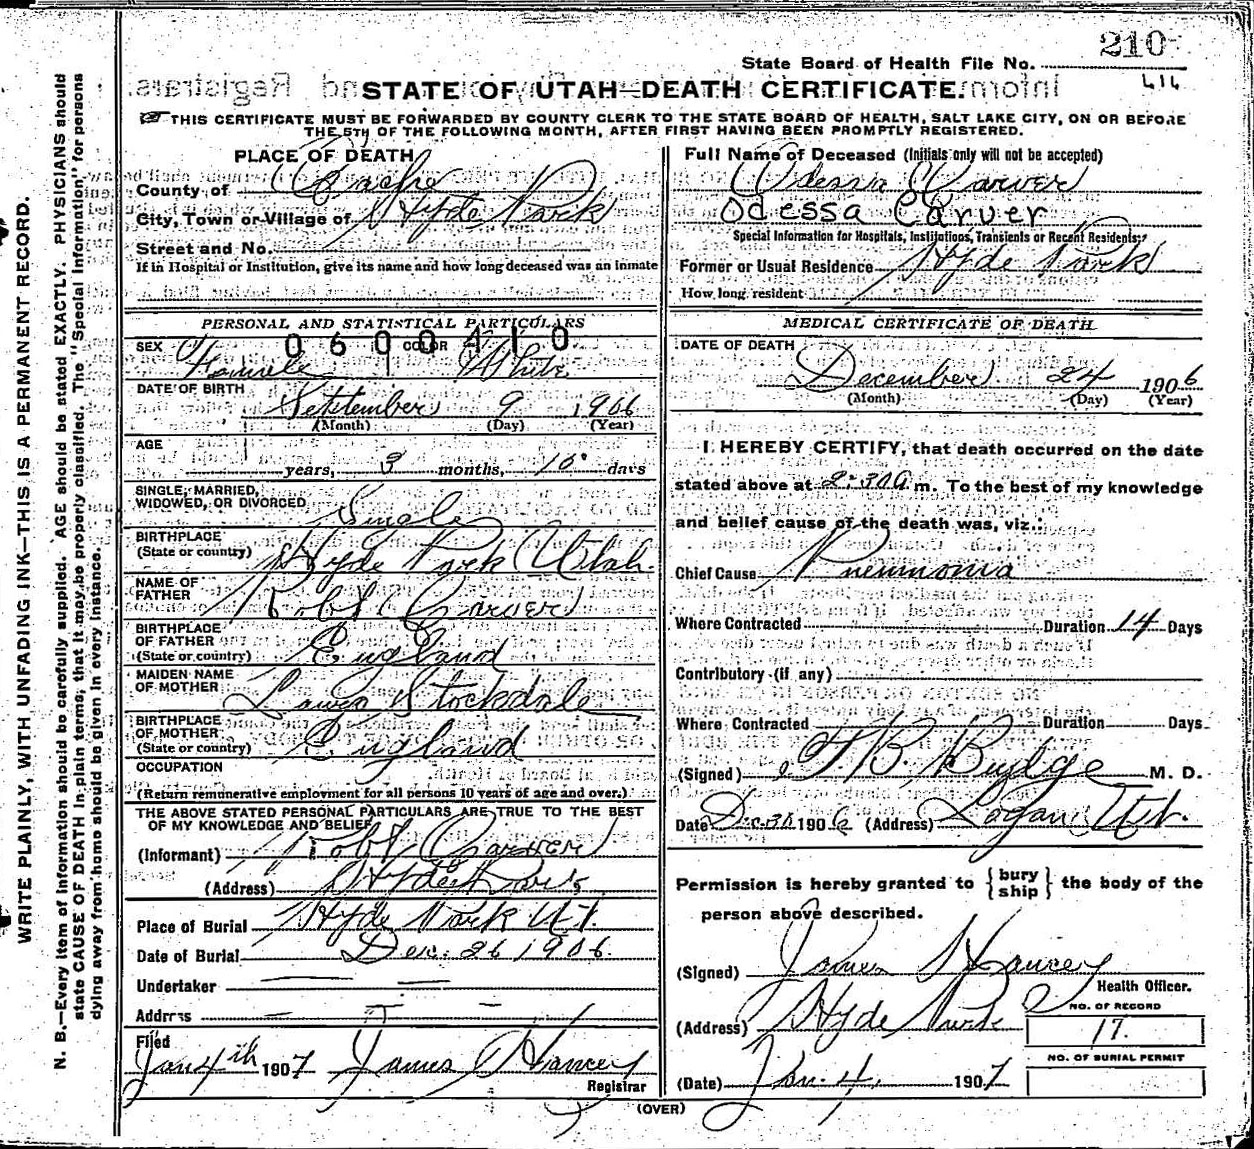 210
State Board of Health File No.
416
STATE OF UTAH—DEATH CERTIFICATE.
THIS CERTIFICATE MUST BE FORWARDED BY COUNTY CLERK TO THE STATE BOARD OF HEALTH, SALT LAKE CITY, ON OR BEFORE
THE 5TH OF THE FOLLOWING MONTH, AFTER FIRST HAVING BEEN PROMPTLY REGISTERED.
WRITE PLAINLY, WITH UNFADING INK—THIS IS A PERMANENT RECORD.
N. B.—Every item of information should be carefully supplied. AGE should be stated EXACTLY. PHYSICIANS should
state CAUSE OF DEATH in plain terms, that it may be properly classified. The "Special Information" for persons
dying away from home should be given in every instance.
PLACE OF DEATH
County of Cache
City, Town or Village of Hyde Park
Street and No.
If in Hospital or Institution, give its name and how long deceased was an inmate
PERSONAL AND STATISTICAL PARTICULARS
0600410
SEX Female COLOR White
DATE OF BIRTH
September 9 1906
(Month) (Day) (Year)
AGE
years, 3 months, 10 days
SINGLE, MARRIED,
WIDOWED, OR DIVORCED Single
BIRTHPLACE
(State or country) Hyde Park Utah.
NAME OF
FATHER Robt Carver
BIRTHPLACE
OF FATHER
(State or country) England
MAIDEN NAME
OF MOTHER Stocksdale
BIRTHPLACE
OF MOTHER
(State or country) England
OCCUPATION
(Return remunerative employment for all persons 10 years of age and over.)
THE ABOVE STATED PERSONAL PARTICULARS ARE TRUE TO THE BEST
OF MY KNOWLEDGE AND BELIEF
(Informant) Robt Carver
(Address) Hyde Park
Place of Burial Hyde Park Ut.
Date of Burial Dec. 26 1906.
Undertaker
Address
Filed
Jan 4th 1907 James Hancey
Registrar
Full Name of Deceased (Initials only will not be accepted)
Odessa Carver
Odessa Carver
Special Information for Hospitals, Institutions, Transients or Recent Residents:
Former or Usual Residence Hyde Park
How long resident
MEDICAL CERTIFICATE OF DEATH
DATE OF DEATH
December 24 1906
(Month) (Day) (Year)
I HEREBY CERTIFY, that death occurred on the date
stated above at 2:30 A m. To the best of my knowledge
and belief cause of the death was, viz.:
Chief Cause Pneumonia
Where Contracted Duration 14 Days
Contributory (if any)
Where Contracted Duration Days
(Signed) Budge M. D.
Date Dec 1906 (Address) Logan, Ut.
Permission is hereby granted to { bury ship } the body of the
person above described.
(Signed) James Hancey
Health Officer.
(Address) Hyde Park
NO. OF RECORD
17.
NO. OF BURIAL PERMIT
(Date) Jan. 4, 1907
(OVER)